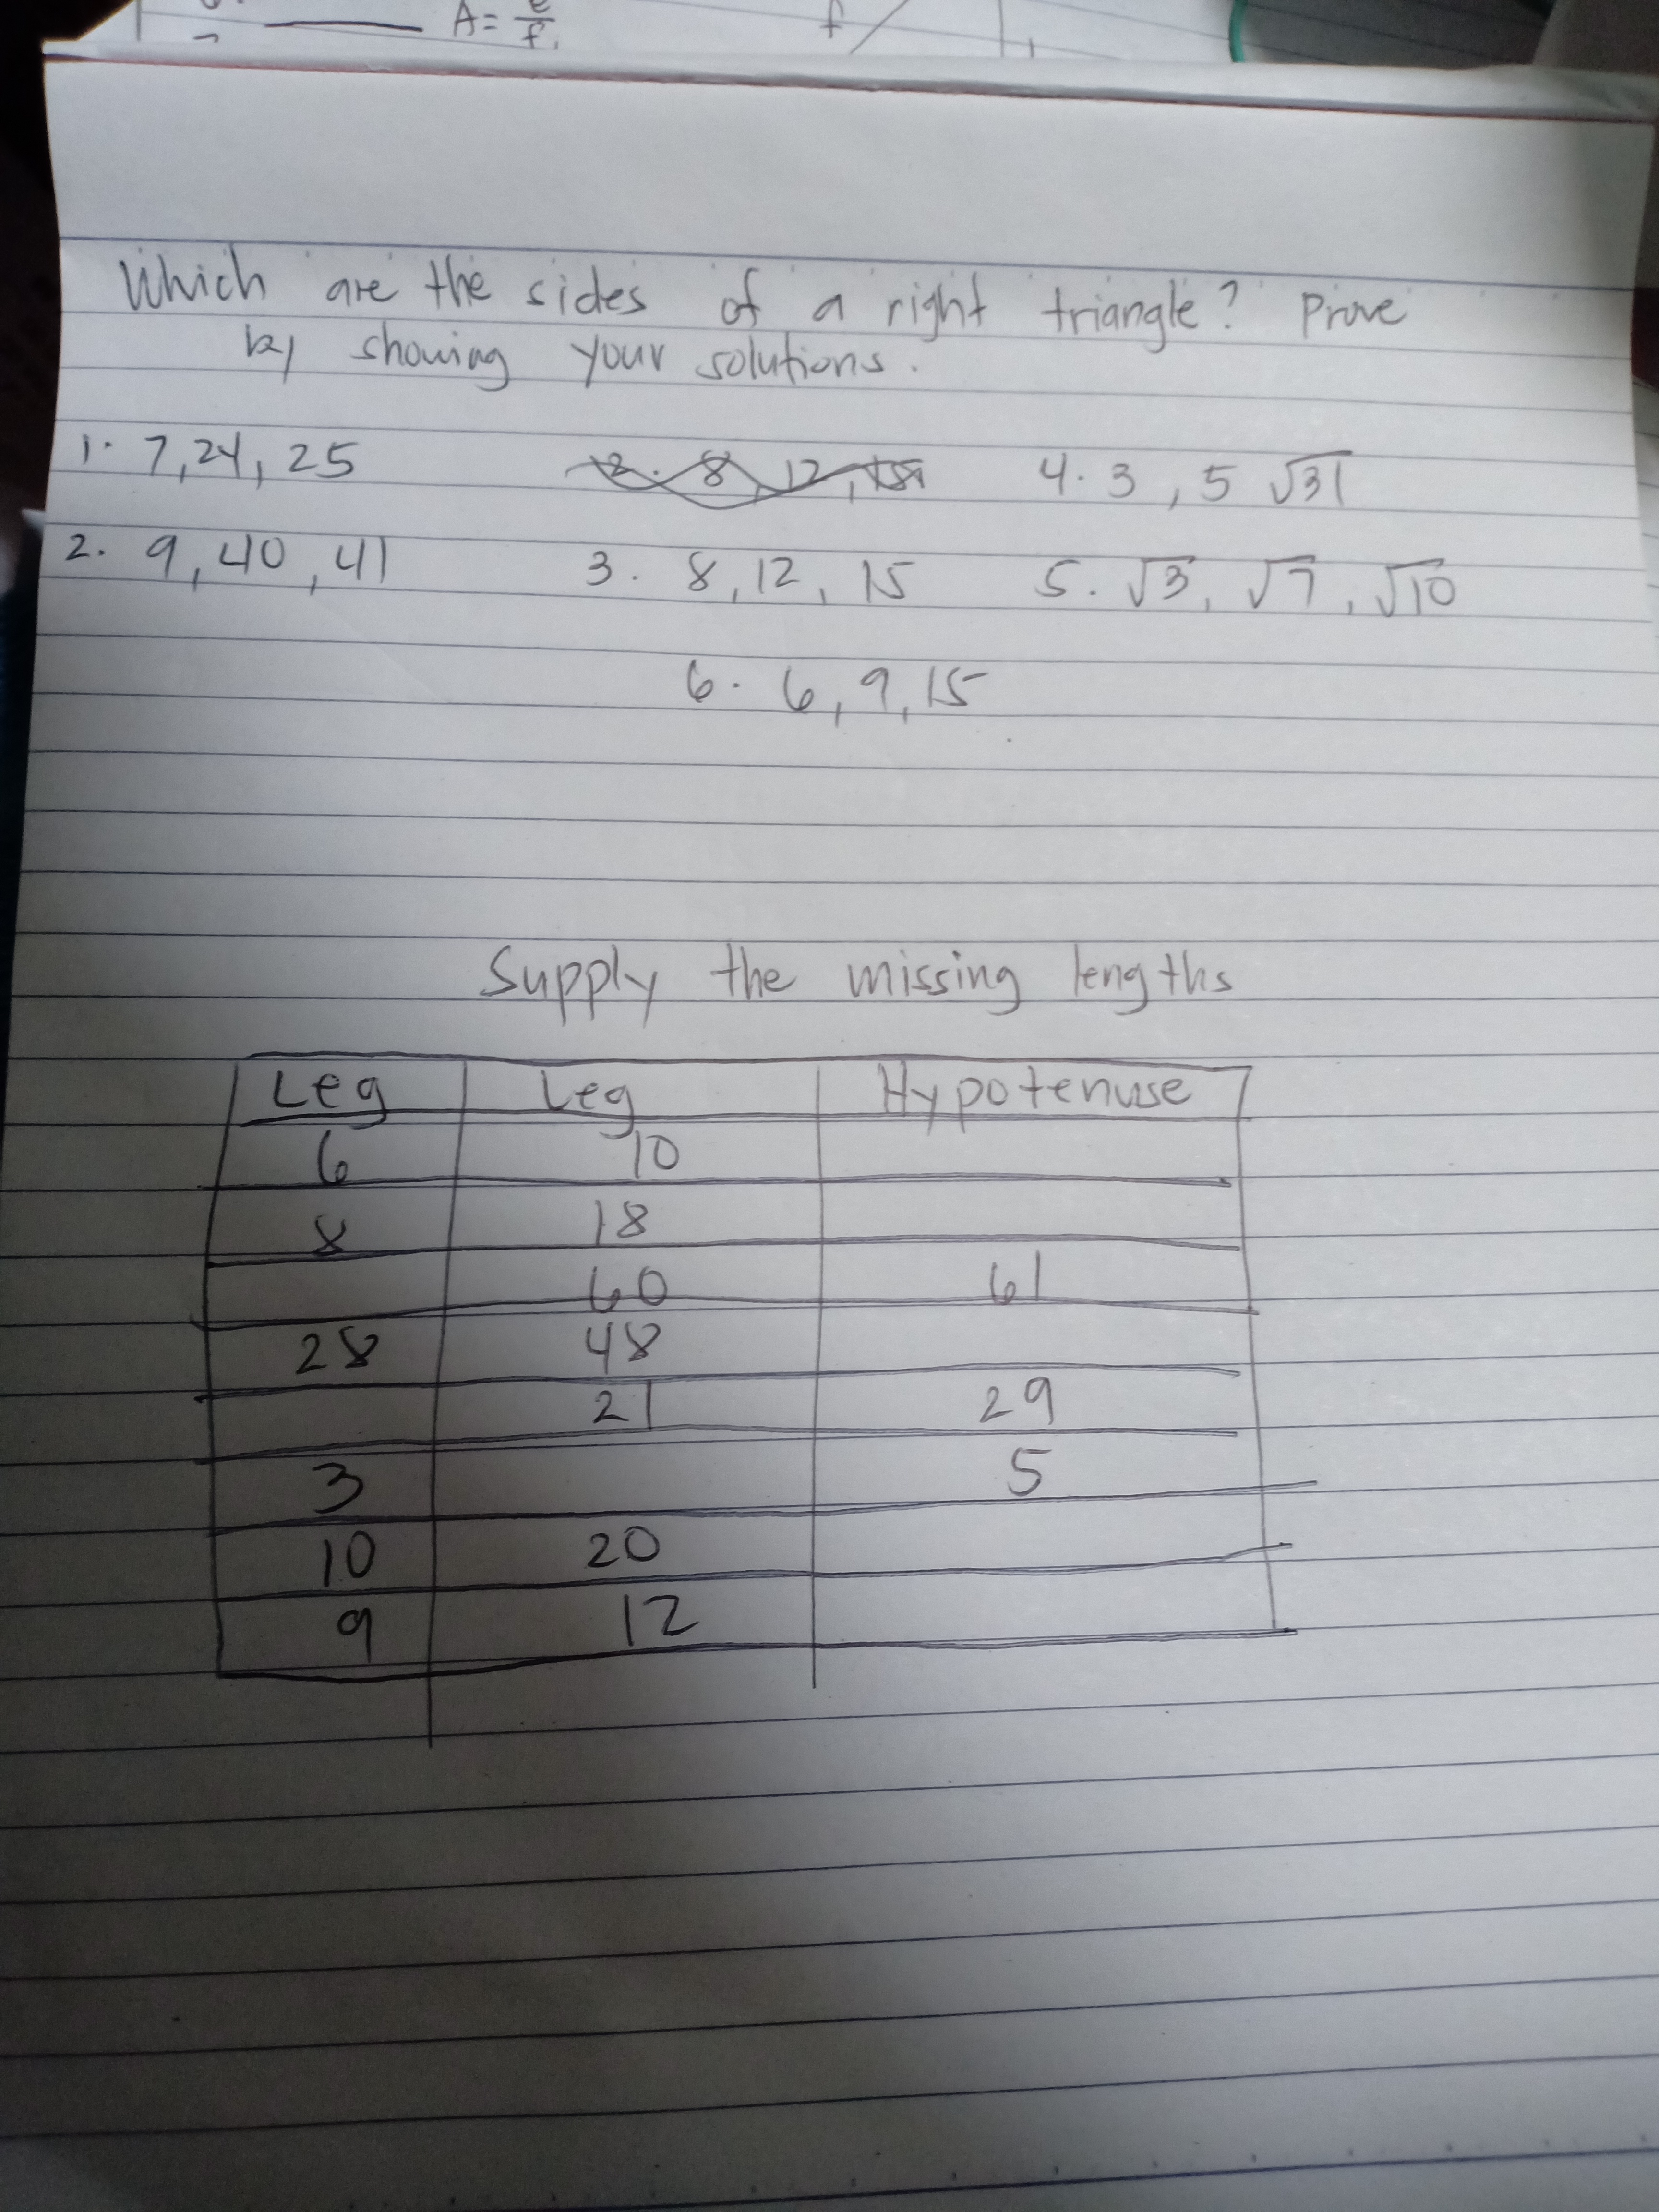 A = e/f
f
Which are the sides of a right triangle? Prove
by showing your solutions.
1. 7, 24, 25
2. 8, 12, 15
4. 3, 5 √31
2. 9, 40, 41
3. 8, 12, 15
5. √3, √7, √10
6. 6, 9, 15
Supply the missing lengths
Leg Leg Hypotenuse
6 10
8 18
60 61
28 48
21 29
3 5
10 20
9 12